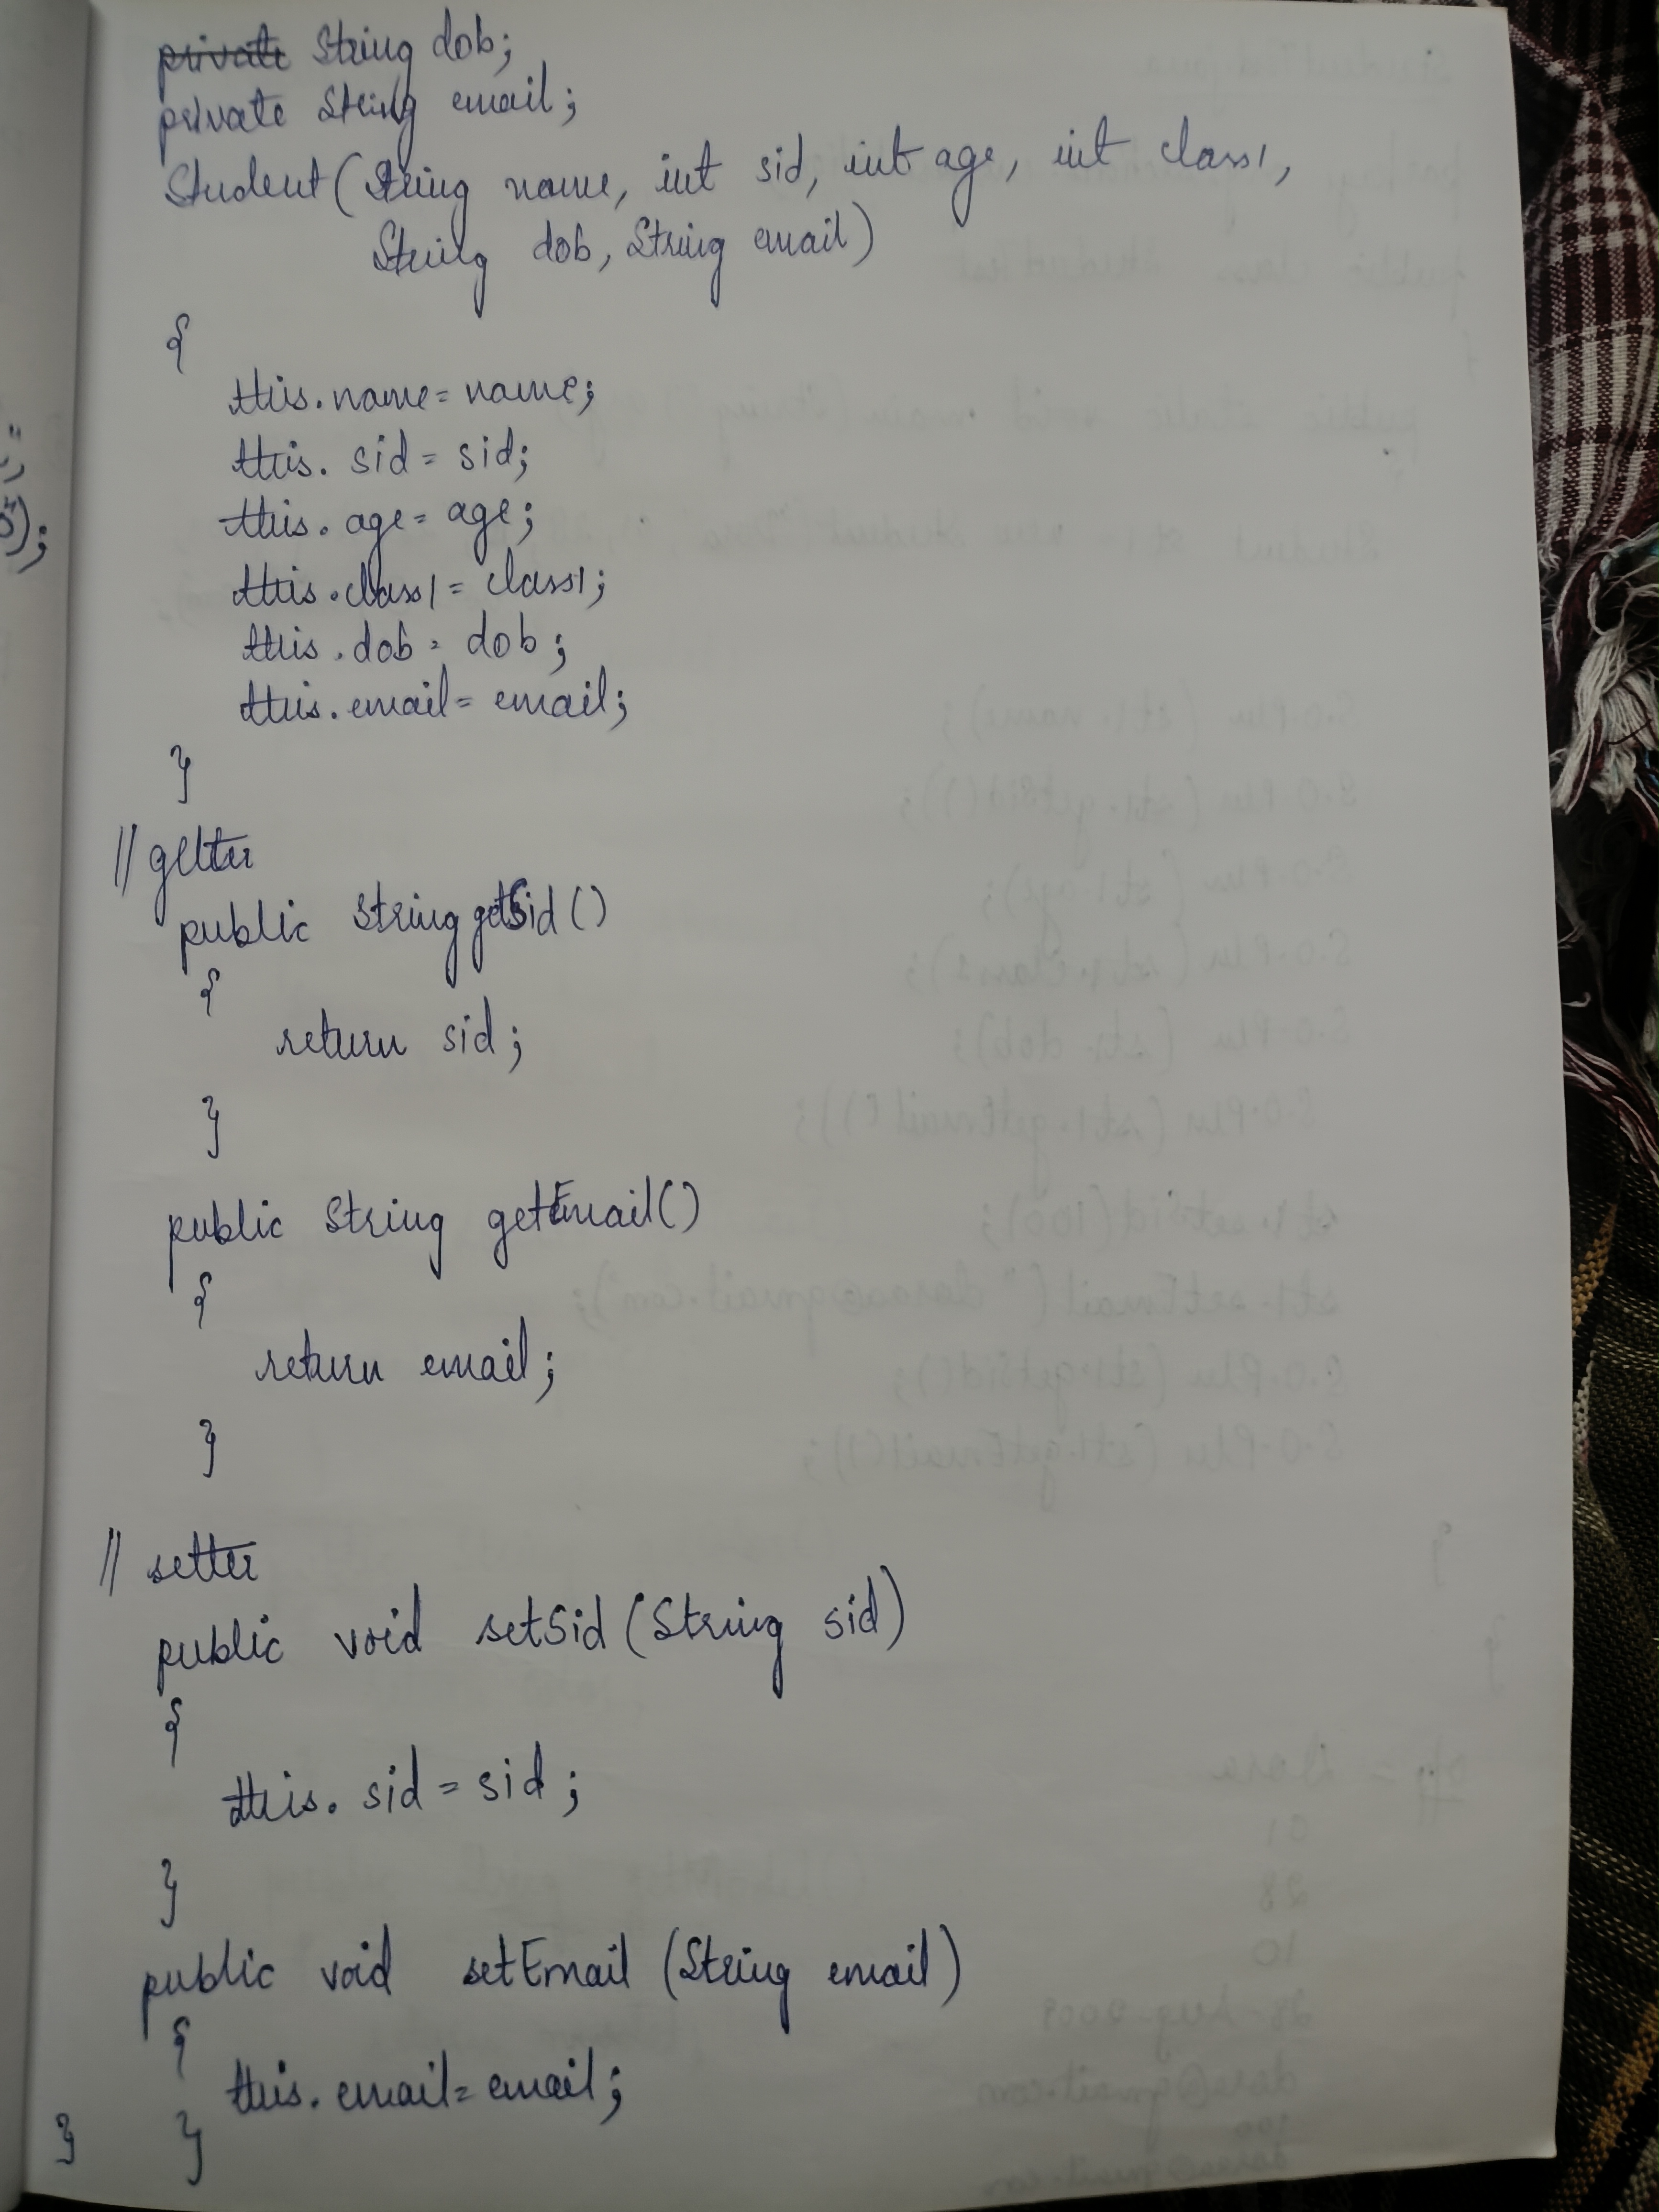 private String dob;
private String email;
Student(String name, int sid, int age, int class1,
String dob, String email)
{
this.name=name;
this. sid = sid;
this. age= age;
this.class1= class1;
this.dob= dob;
this.email= email;
}
// getter
public String getSid()
{
return sid;
}
public String getEmail()
{
return email;
}
// setter
public void setSid(String sid)
{
this. sid = sid;
}
public void setEmail (String email)
{
this.email= email;
}
}